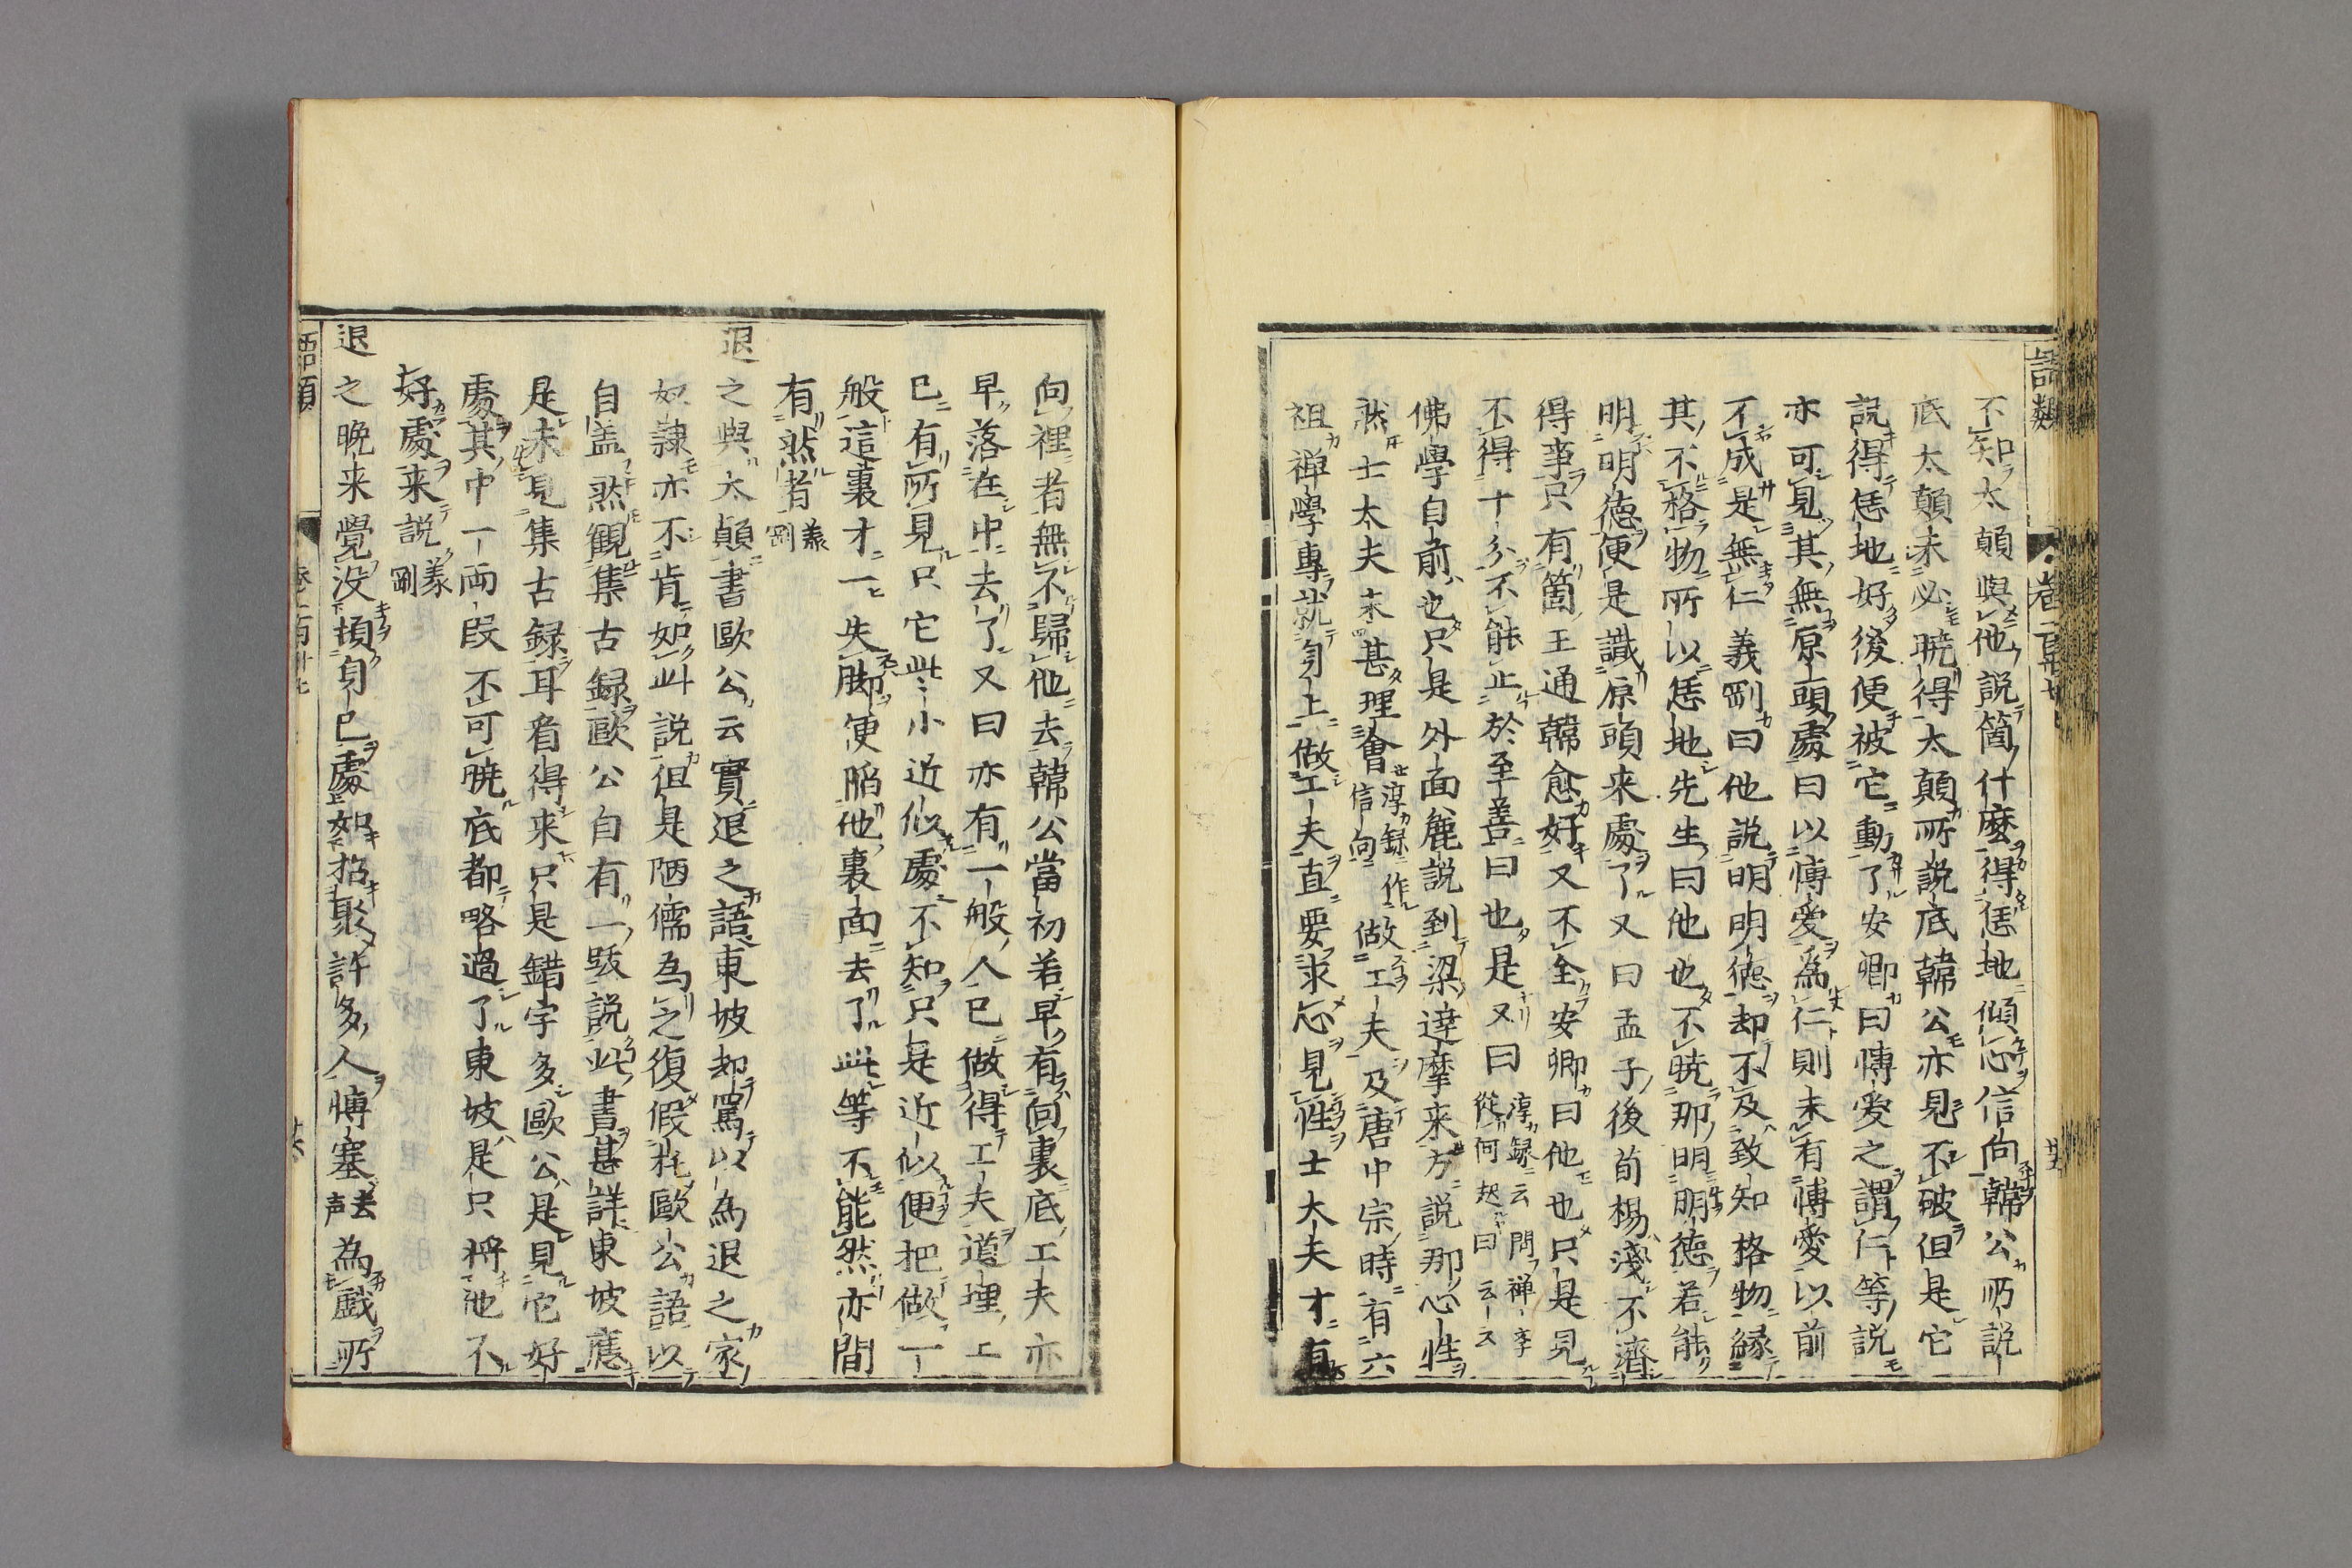 語類 卷一百卅七 廿五
不知太顛與他說箇什麼得恁地傾心信向韓公所說
底太顛未必曉得太顛所說底韓公亦見不破但是它
說得恁地好後便被它動了安卿曰博愛之謂仁等說
亦可見其無原頭處曰以博愛為仁則未有博愛以前
不成是無仁義剛曰他說明明德却不及致知格物縁
其不格物所以恁地先生曰他也不曉那明明德若能
明明德便是識原頭来處了又曰孟子後荀楊淺不濟
得事只有箇王通韓愈好又不全安卿曰他也只是見
不得十分不能止於至善曰也是又曰淳録云問禅学從何起曰云云
佛學自前也只是外面麁說到梁達摩来方説那心性
然士太夫未甚理會淳録作信向做工夫及唐中宗時有六
祖禅學專就身上做工夫直要求心見性士大夫才有
向裡者無不歸他去韓公當初若早有向裏底工夫亦
早落在中去了又曰亦有一般人已做得工夫道理上
已有所見只它些小近似處不知只是近似便把做一
般這裏才一失脚便陥他裏面去了此等不能然亦間
有然者義剛
退之與太顛書歐公云實退之語東坡却罵以為退之家
奴隷亦不肯如此説但是陋儒為之復假托歐公語以
自盖然觀集古録歐公自有一跋説此書甚詳東坡應
是未見集古録耳看得来只是錯字多歐公是見它好
處其中一両段不可曉底都略過了東坡是只將他不
好處来説義剛
退之晩来覺没頓身已處如招聚許多人博塞去声為戯所
語類 卷一百卅七 廿六